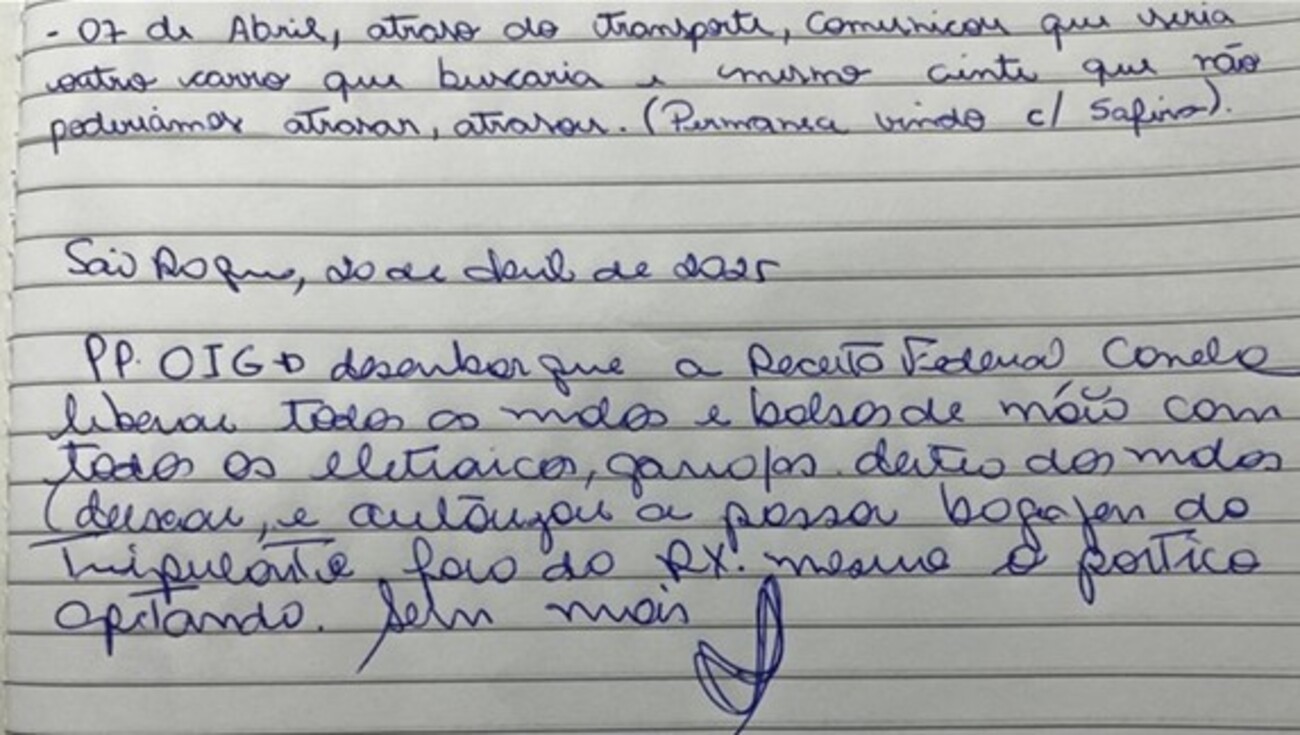 - 07 de Abril, atraso do transporte, comunicou que seria
outro carro que buscaria e mesmo ciente que não
poderiamos atrasar, atrasou. (Permanza vindo c/ Safira).
São Roque, 20 de Abril de 2025
PP. OIGD desembarque a Receita Federal
liberou todos as malas e bolsas de mão com
todos os eletraicos, dentro das malas
(deixou, e autorizou a passar bagajen do
tripulante fora do RX. mesmo o portico
apitando. Sem mais